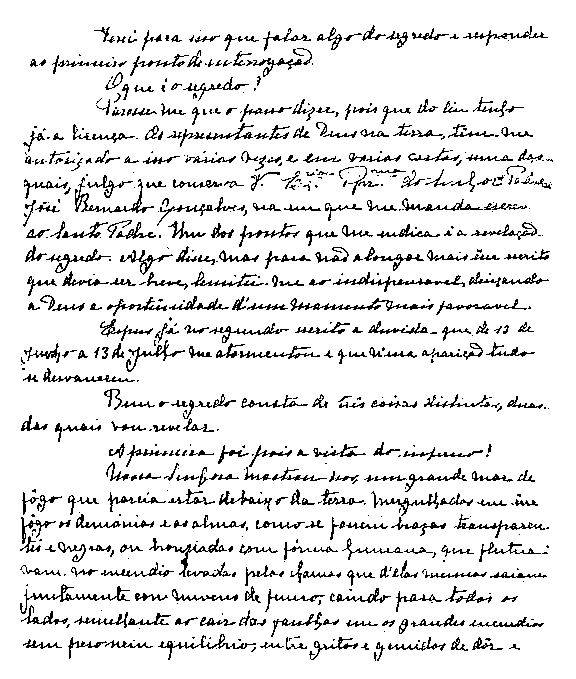 Terei para isso que falar algo do segredo e responder
ao primeiro ponto de interrogação.
O que é o segredo?
Parece-me que o posso dizer, pois que do Ceu tenho
já a licença. Os representantes de Deus na terra, têm-me
autorizado a isso várias vezes, e em varias cartas, uma das
quais, julgo que conserva V. Ex.cia Rev.ma do Senhor Padre
José Bernardo Gonçalves, na em que me manda escrever
ao Santo Padre. Um dos pontos que me indica é a revelação
do segredo. Algo disse, mas para não alongar mais êsse escrito
que devia ser breve, limitei-me ao indispensavel, deixando
a Deus a oportunidade d'um momento mais favoravel.
Expus já no segundo escrito a duvida que de 13 de
Junho a 13 de Julho me atormentou e que n'essa aparição tudo
se desvaneceu.
Bem o segredo consta de três coisas distintas, duas
das quais vou revelar.
A primeira foi pois a vista do inferno!
Nossa Senhora mostrou-nos um grande mar de
fôgo que parecia estar debaixo da terra. Mergulhados em êsse
fôgo os demónios e as almas, como se fossem brazas transparen-
tes e negras, ou bronziadas com fórma humana, que flutua-
vam no incendio levadas pelas chamas que d'elas mesmas saiam
juntamente com nuvens de fumo, caindo para todos os
lados, semelhante ao cair das faulhas em os grandes incendios
sem peso nem equilibrio, entre gritos e gemidos de dôr e